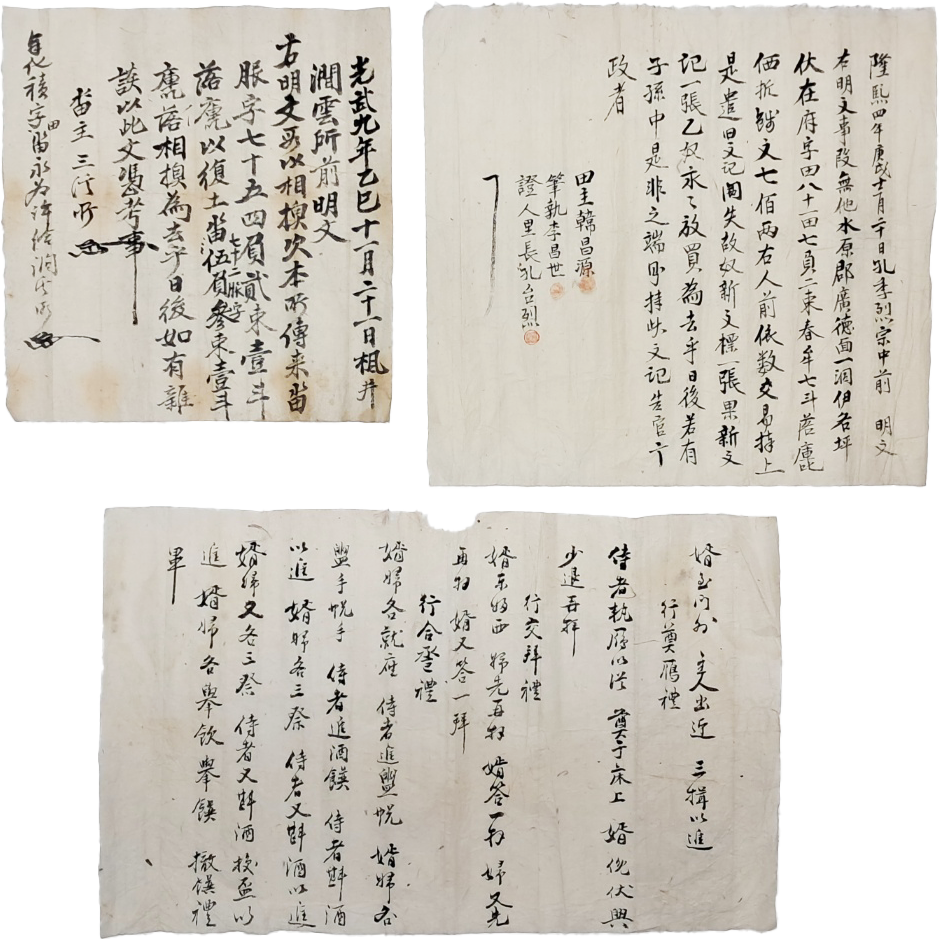 光武九年乙巳十一月二十一日楓井
澗雲所前明文
右明文段以相換次本所傳来畓
服字七十五四負貳東壹斗
落庬以復土畓伍負參束壹斗
七十二服字
庬落相換為去乎日後如有雜
談以此文憑考事
畓主三溪所
年代積字畓永为許給澗雲所
田
隆熙四年庚戌十一月二十日孔季烈宗中前 明文
右明文事段無他水原郡廣德面一洞伊各坪
伏在府字田八十一田七負二束春牟七斗落庫乙
価折錢文七佰兩右人前依数交易捧上
是遣旧文記閪失故奴新文標一張果新文
記一張乙奴永々放買為去乎日後若有
子孫中是非之端則持此文記告官卞
政者
田主韓昌源
筆執李昌世
證人里長孔台烈
婿至门外 主人出迎 三揖以進
行奠鴈禮
侍者執鴈以從 奠于床上 婿俛伏興
少退再拜
行交拜禮
婿東婦西 婦先再拜 婿答一拜 婦又先
再拜 婿又答一拜
行合巹禮
婿婦各就座 侍者進盥帨 婿婦各
盥手帨手 侍者進酒饌 侍者斟酒
以進 婿婦各三祭 侍者又斟酒以進
婿婦又各三祭 侍者又斟酒換盃以
進 婿婦各舉飲舉饌 撤饌禮
畢